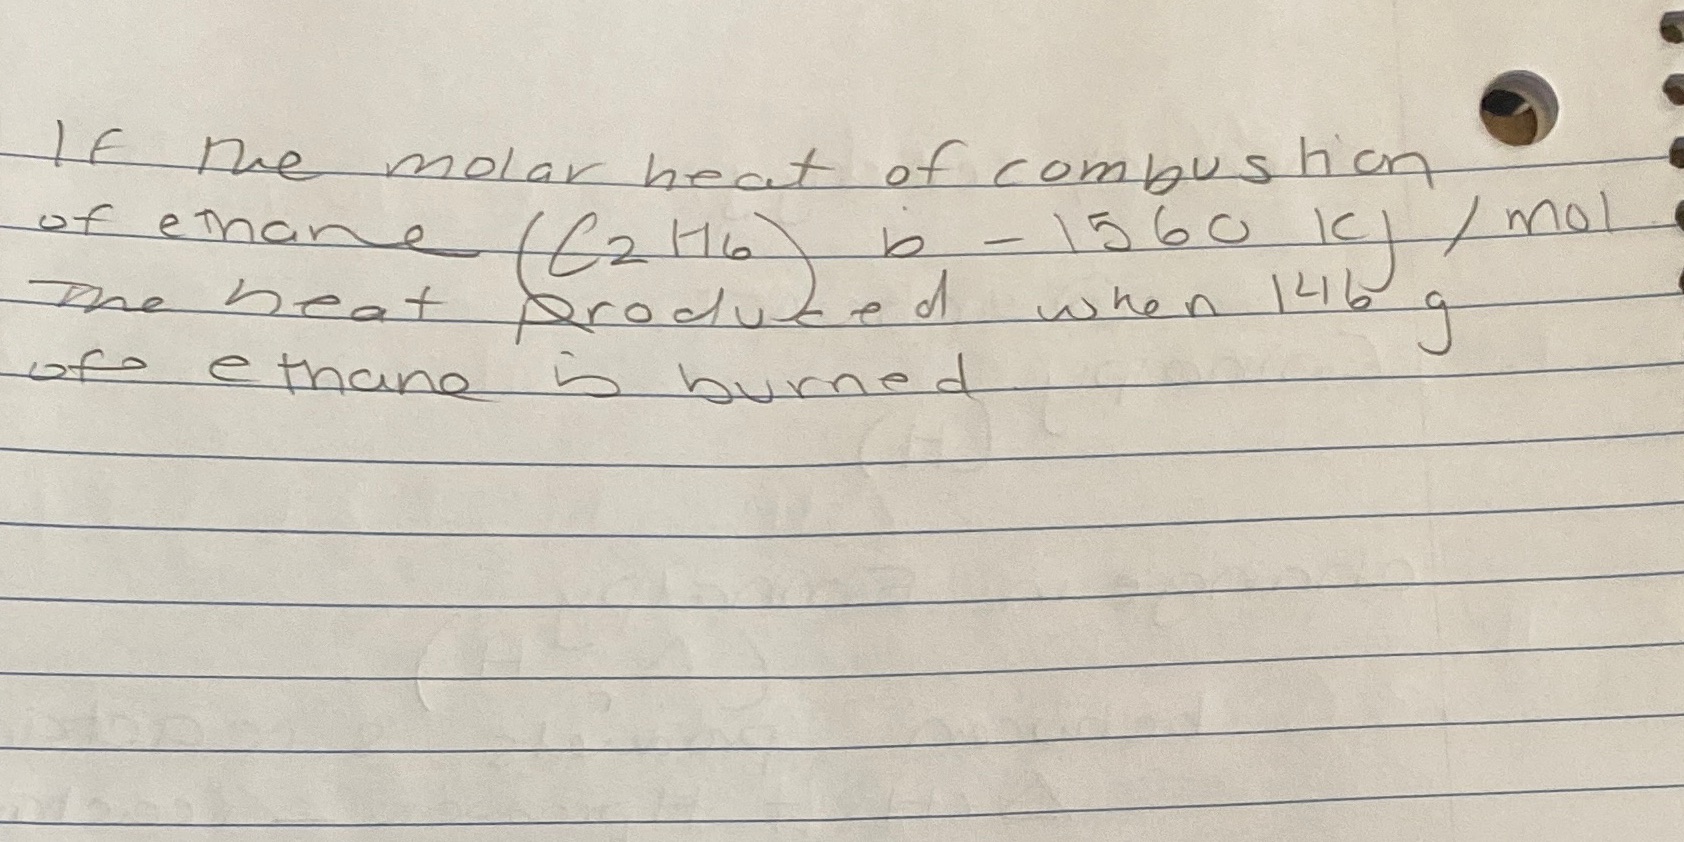 If the molar heat of combustion
of ethane (C2H6) is -1560 kJ/mol
The heat produced when 146 g
of ethane is burned